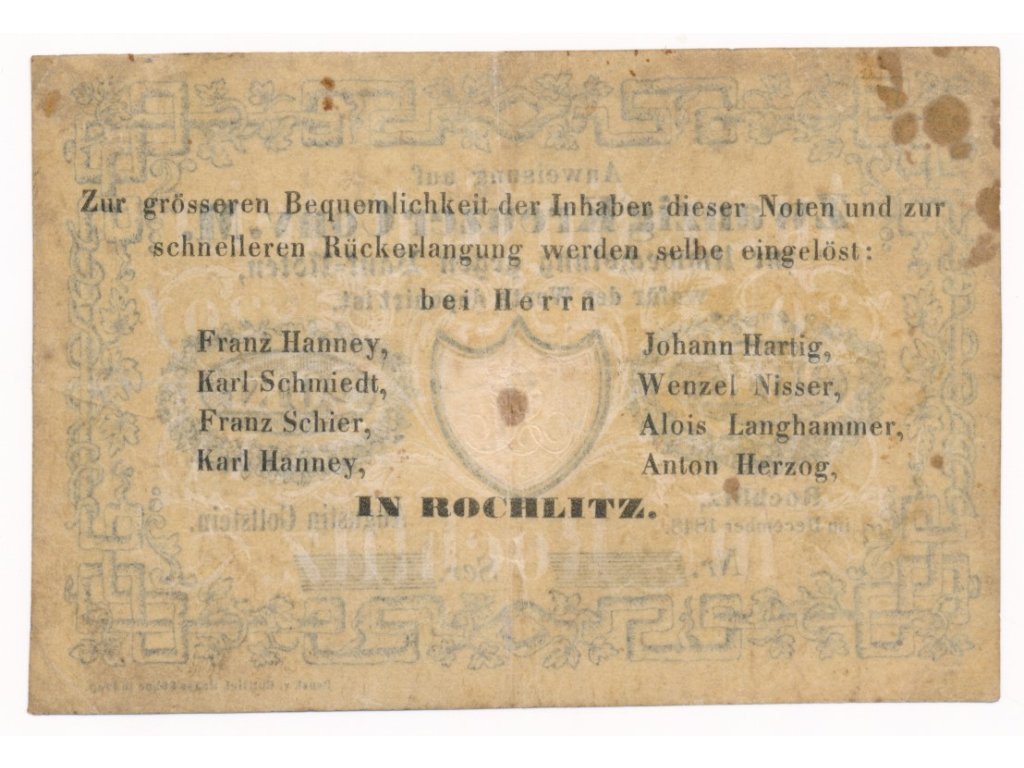 Zur grösseren Bequemlichkeit der Inhaber dieser Noten und zur
schnelleren Rückerlangung werden selbe eingelöst:
bei Herrn
Franz Hanney, Johann Hartig,
Karl Schmiedt, Wenzel Nisser,
Franz Schier, Alois Langhammer,
Karl Hanney, Anton Herzog,
IN ROCHLITZ.